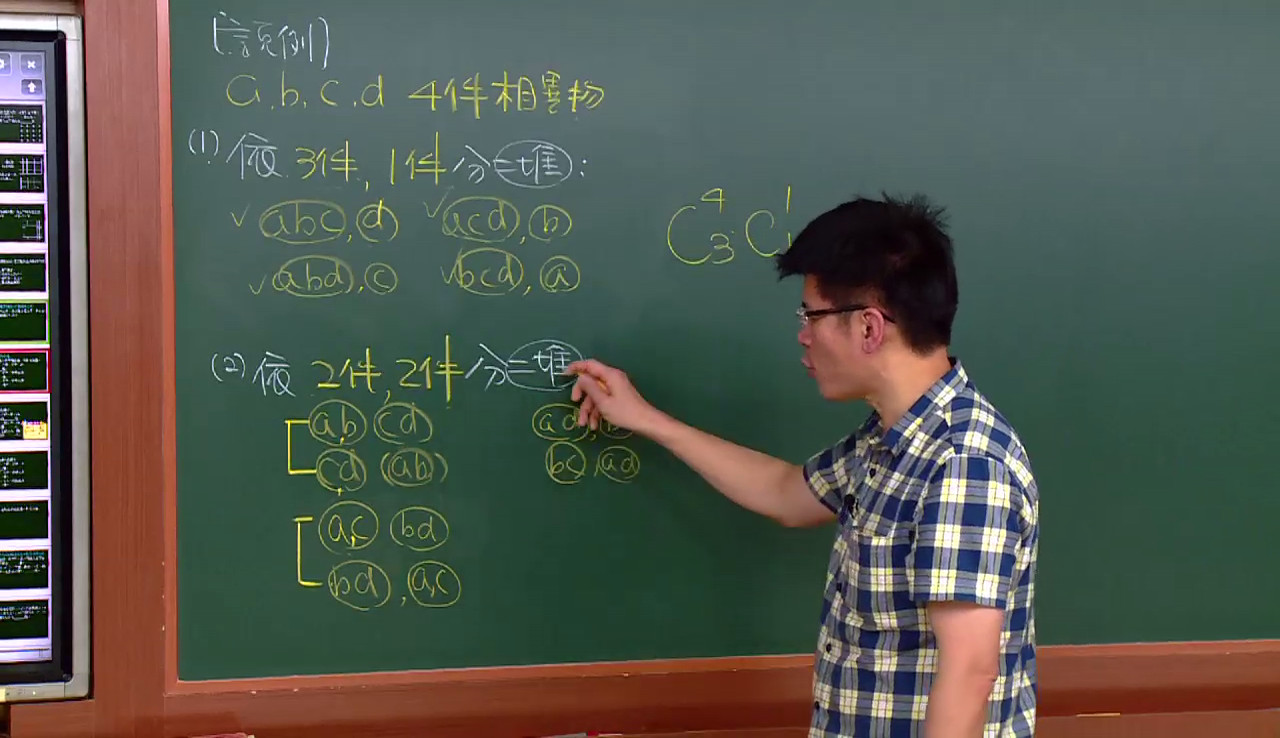 [說例]
a, b, c, d 4件相異物
(1) 依 3件, 1件 分二堆:
✓ abc, d ✓ acd, b
✓ abd, c ✓ bcd, a
C⁴₃ C¹₁
(2) 依 2件, 2件 分二堆
ab cd ad,
cd ab bc, ad
ac bd
bd, ac